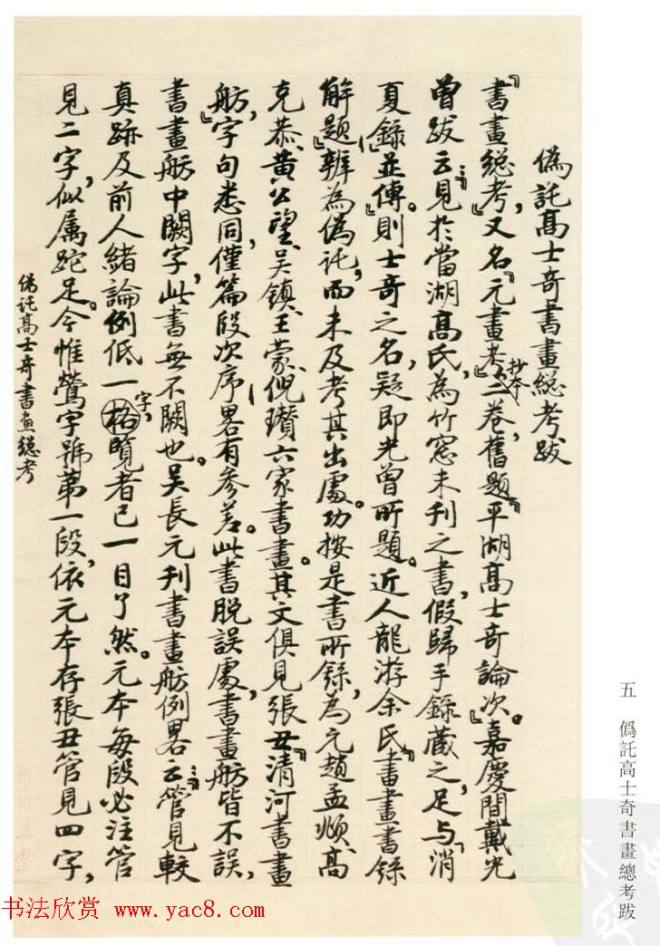 偽託高士奇書畫總考跋
『書畫總考』,又名『元畫考』二卷,抄本,舊題『平湖高士奇論次』。嘉慶間戴光
曾跋云:『見於當湖高氏,為竹窓未刊之書,假歸手錄藏之,足与『消
夏錄』並傳。』則士奇之名,疑即光曾所題。近人龍游余氏『書畫書錄
解題』辨為偽託,而未及考其出處。功按是書所錄,為元趙孟頫、高
克恭、黃公望、吳鎮、王蒙、倪瓚六家書畫。其文俱見張丑『清河書畫
舫』,字句悉同,僅篇段次序畧有參差。此書脫誤處,書畫舫皆不誤,
書畫舫中闕字,此書無不闕也。吳長元刊書畫舫例畧云:『管見較
真跡及前人緒論例低一格字,覽者已一目了然。元本每段必注管
見二字,似属蛇足。今惟鶯字號第一段,依元本存張丑管見四字,
偽託高士奇書畫總考
五 偽託高士奇書畫總考跋
书法欣赏 www.yac8.com